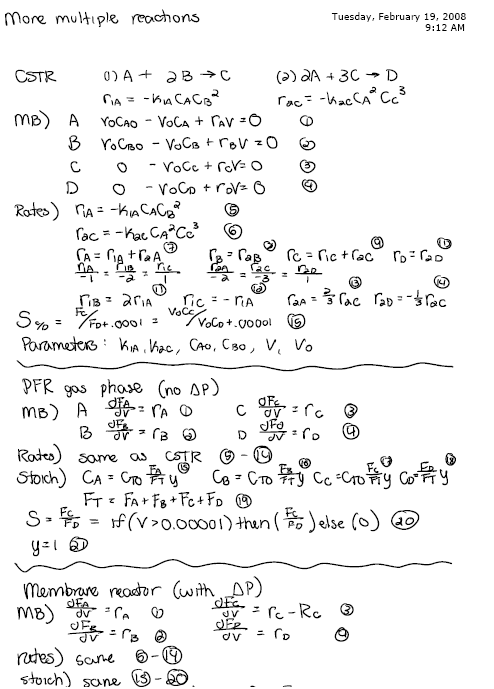 More multiple reactions
Tuesday, February 19, 2008
9:12 AM
CSTR (1) A + 2B → C (2) 2A + 3C → D
r1A = -k1A CA CB² r2C = -k2C CA² CC³
MB) A v0CA0 - v0CA + rAV = 0 ①
B v0CB0 - v0CB + rBV = 0 ②
C 0 - v0CC + rCV = 0 ③
D 0 - v0CD + rDV = 0 ④
Rates) r1A = -k1A CA CB² ⑤
r2C = -k2C CA² CC³ ⑥
rA = r1A + r2A ⑦ rB = r2B rC = r1C + r2C ⑨ rD = r2D
r1A/-1 = r1B/-2 = r1C/1 r2A/-2 = r2C/-3 = r2D/1
⑪ ⑫ ⑬ ⑭
r1B = 2r1A r1C = -r1A r2A = 2/3 r2C r2D = -1/3 r2C
S%D = FC/FD+.0001 = v0CC/v0CD+.00001 ⑮
Parameters: k1A, k2C, CA0, CB0, V, v0
PFR gas phase (no ΔP)
MB) A dFA/dV = rA ① C dFC/dV = rC ③
B dFB/dV = rB ② D dFD/dV = rD ④
Rates) same as CSTR ⑤-⑭
Stoich) CA = CT0 FA/FT y ⑮ CB = CT0 FB/FT y ⑯ CC = CT0 FC/FT y ⑰ CD = FD/FT y ⑱
FT = FA + FB + FC + FD ⑲
S = FC/FD = if(V>0.00001) then (FC/FD) else (0) ⑳
y=1 ㉑
Membrane reactor (with ΔP)
MB) dFA/dV = rA ① dFC/dV = rC - RC ③
dFB/dV = rB ② dFD/dV = rD ④
rates) same ⑤-⑭
stoich) same ⑮-⑳